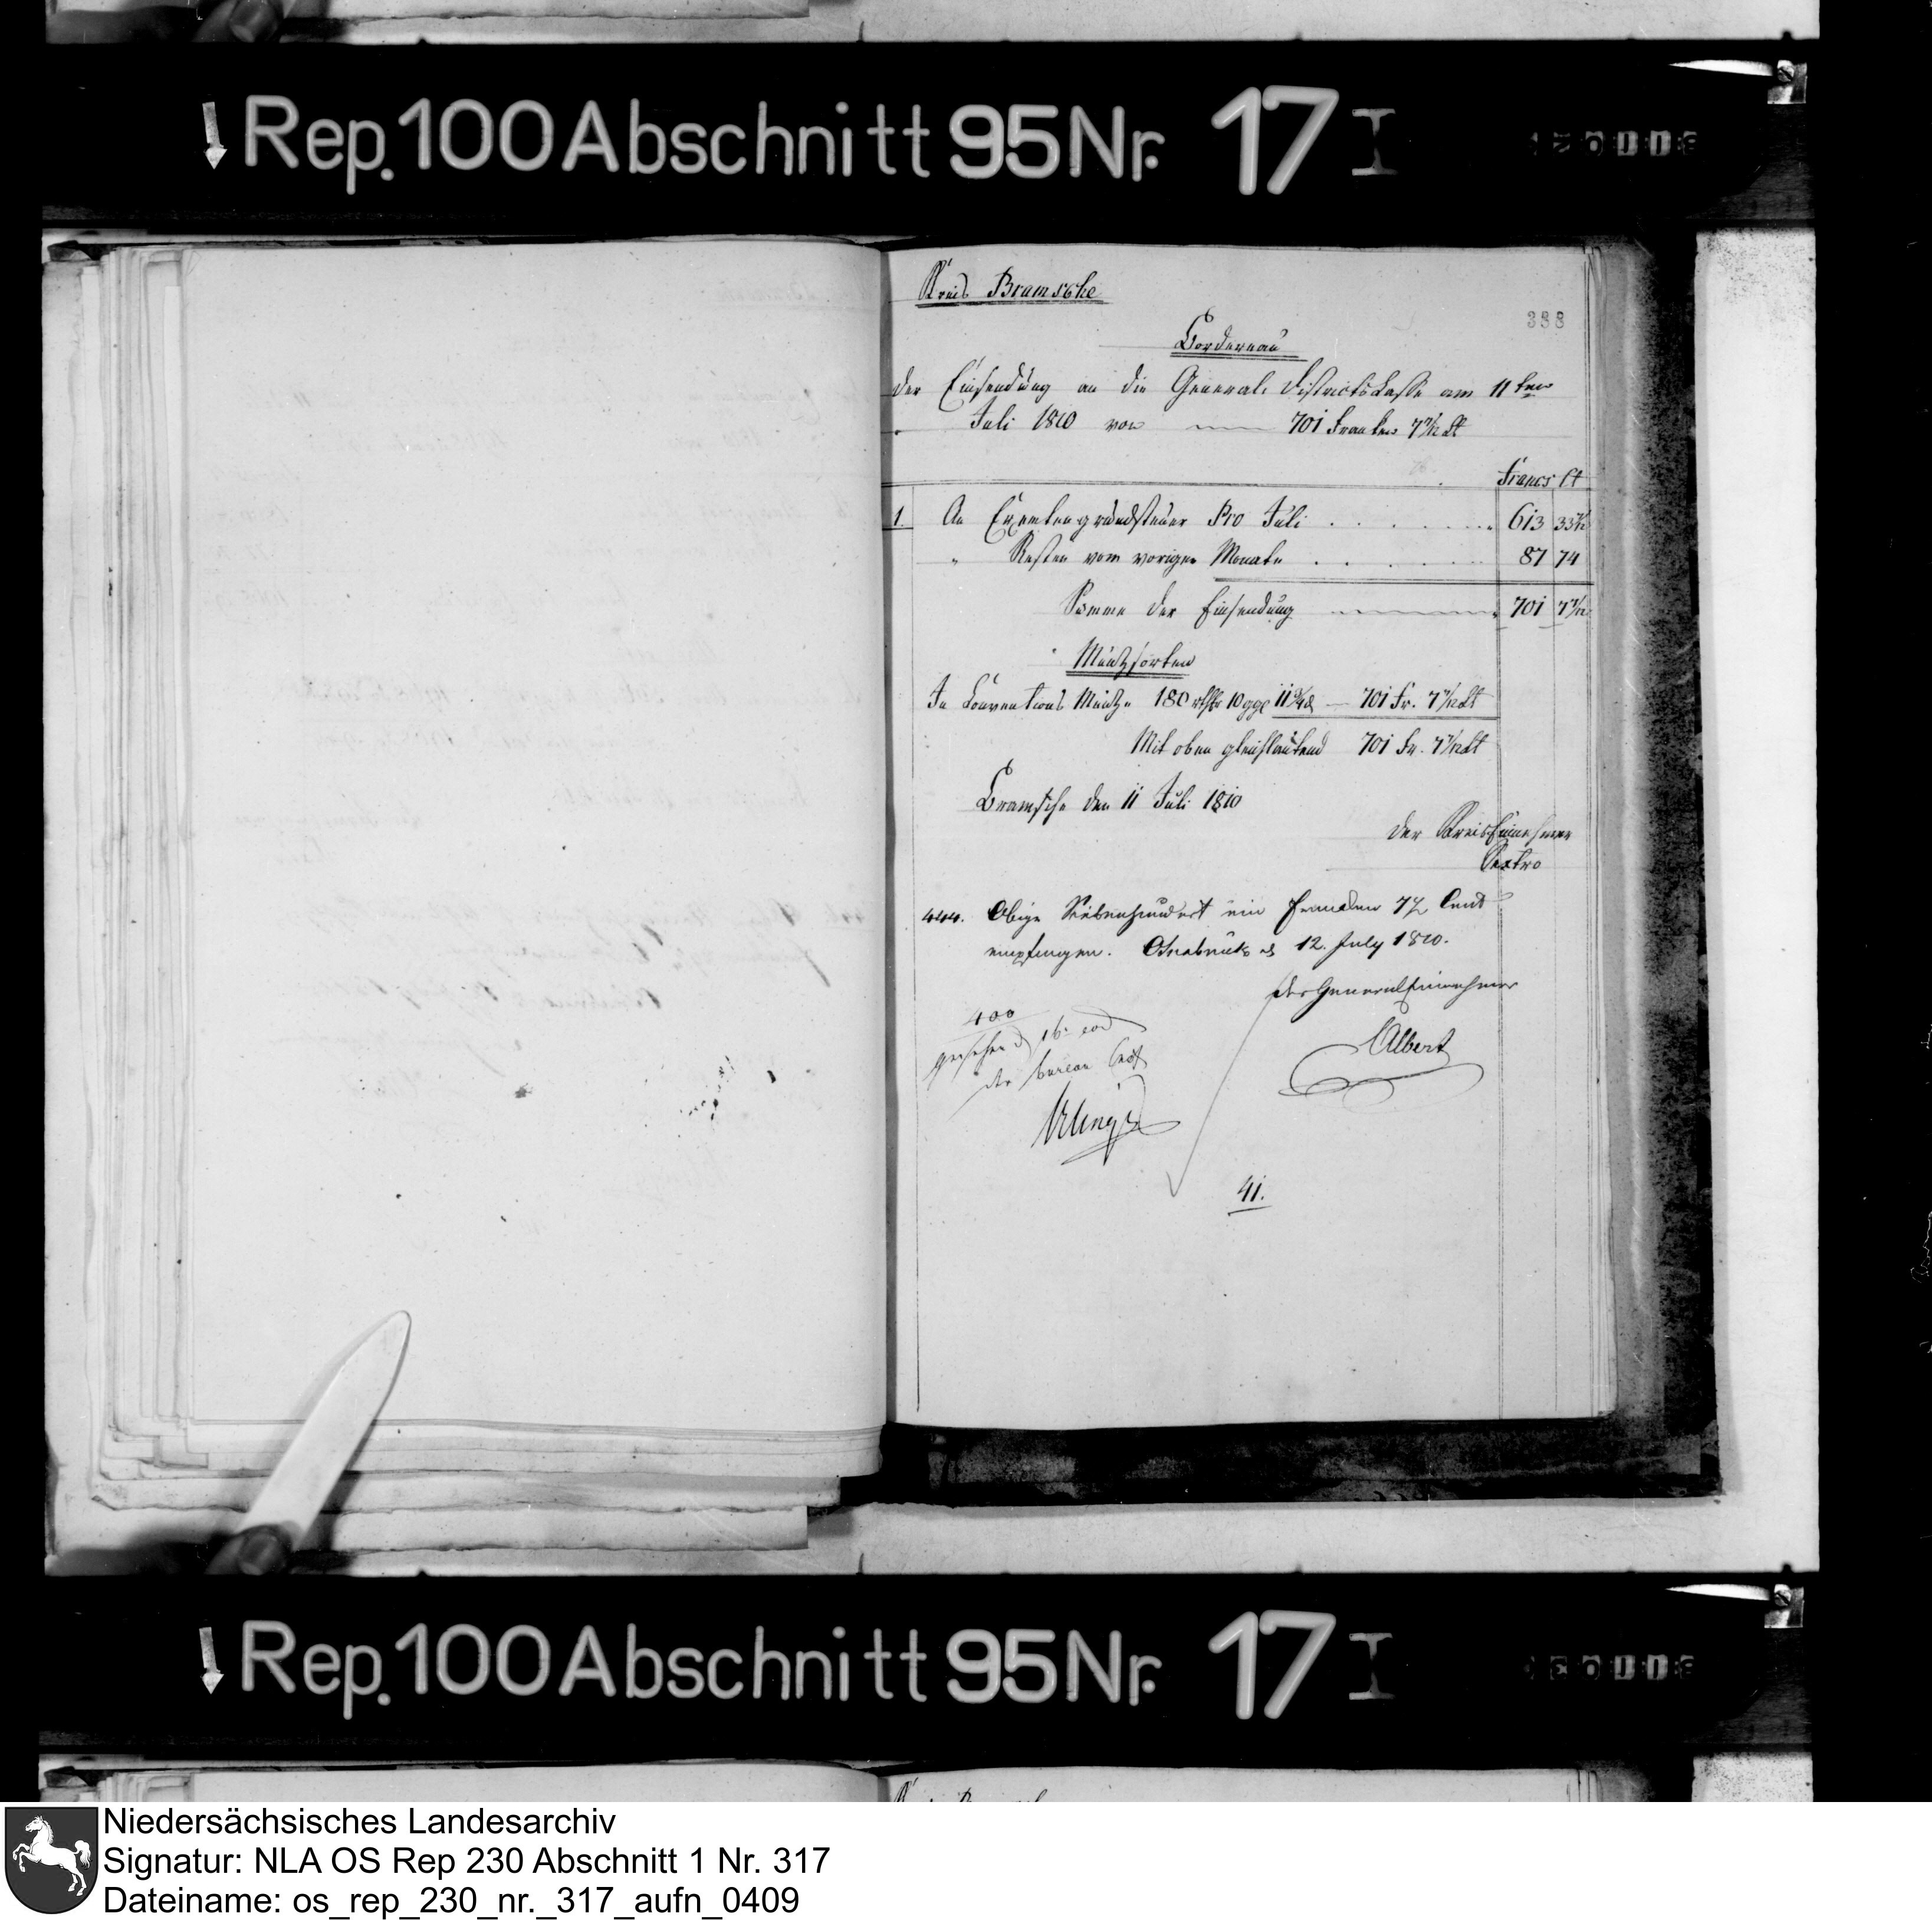 Rep. 100 Abschnitt 95 Nr. 17 I
Kreis Bramsche
388
Bordereau
der Einsendung an die General Districtskasse am 11 ten
Juli 1810 von 701 Franken 7 7/12 Ct
Francs Ct
1. An Exemtengrundsteuer Pro Juli 613 33 7/12
" Resten vom vorigen Monate 87 74
Summe der Einsendung 701 7 7/12
Müntzsorten
In Conventions Müntze 180 rthlr 10 ggr 701 Fr. 7 7/12 Ct
Mit oben gleichlautend 701 Fr. 7 7/12 Ct
Bramsche den 11 Juli 1810
der Kreis Einnehmer
Sextro
444. Obige Siebenhundert ein Franken Cent
empfangen. Osnabrück 12. July 1810.
der General Einnehmer
Albert
400
gesehen 16
der bureau Chef
41.
Rep. 100 Abschnitt 95 Nr. 17 I
Niedersächsisches Landesarchiv
Signatur: NLA OS Rep 230 Abschnitt 1 Nr. 317
Dateiname: os_rep_230_nr._317_aufn_0409